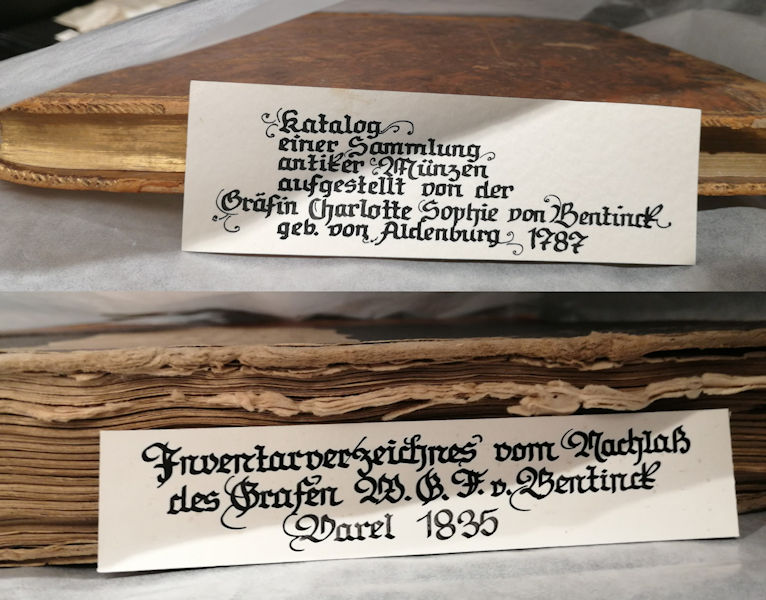 Katalog
einer Sammlung
antiker Münzen
aufgestellt von der
Gräfin Charlotte Sophie von Bentinck
geb. von Aldenburg 1787
Inventarverzeichnes vom Nachlaß
des Grafen W. G. F. v. Bentinck
Varel 1835